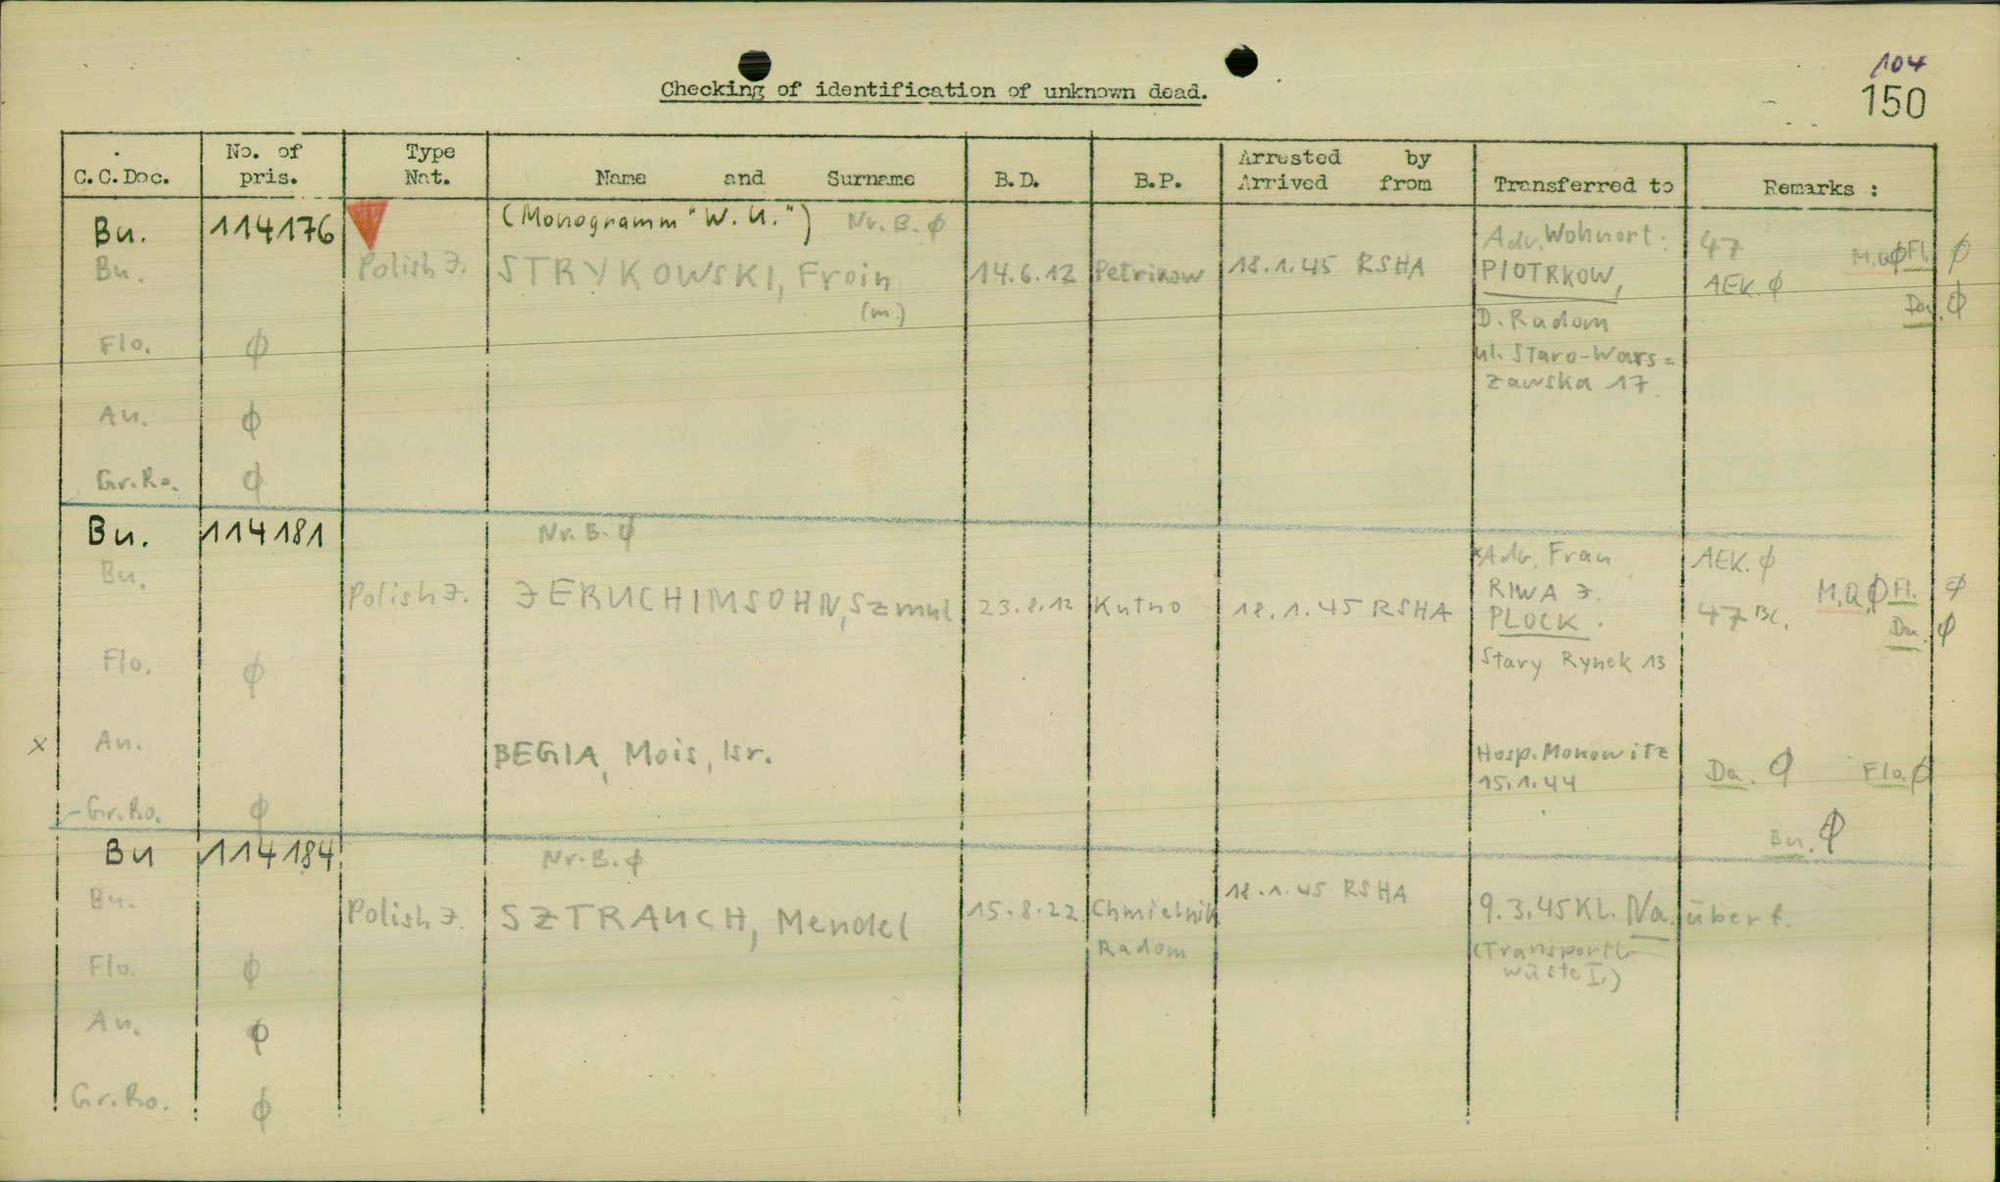 104
150
Checking of identification of unknown dead.
C.C.Doc. No. of pris. Type Nat. Name and Surname B.D. B.P. Arrested by Arrived from Transferred to Remarks :
Bu. 114176 (Monogramm "W.U.") Nr. B. ϕ Adr. Wohnort: 47 M.Q ϕ Fl. ϕ
Bu. Polish J. STRYKOWSKI, Froin (m.) 14.6.12 Petrikow 18.1.45 RSHA PIOTRKOW, AEK. ϕ Da. ϕ
D. Radom
Flo. ϕ ul. Staro-Wars=
zawska 17.
Au. ϕ
Gr.Ro. ϕ
Bu. 114181 Nr. B. ϕ Adr. Frau AEK. ϕ
Bu. Polish J. JERUCHIMSOHN, Szmul 23.8.12 Kutno 18.1.45 RSHA RIWA J. M.Q. ϕ Fl. ϕ
PLOCK. 47 Bl. Da. ϕ
Flo. ϕ Stary Rynek 13
x Au. BEGIA, Mois, Isr. Hosp. Monowitz Da. ϕ Flo. ϕ
15.1.44
Gr.Ro. ϕ Bu. ϕ
Bu 114184 Nr. B. ϕ
Bu. Polish J. SZTRAUCH, Mendel 15.8.22 Chmielnik 18.1.45 RSHA 9.3.45 KL. Na. übert.
Radom (Transportl.
Flo. ϕ Wüste I.)
Au. ϕ
Gr.Ro. ϕ